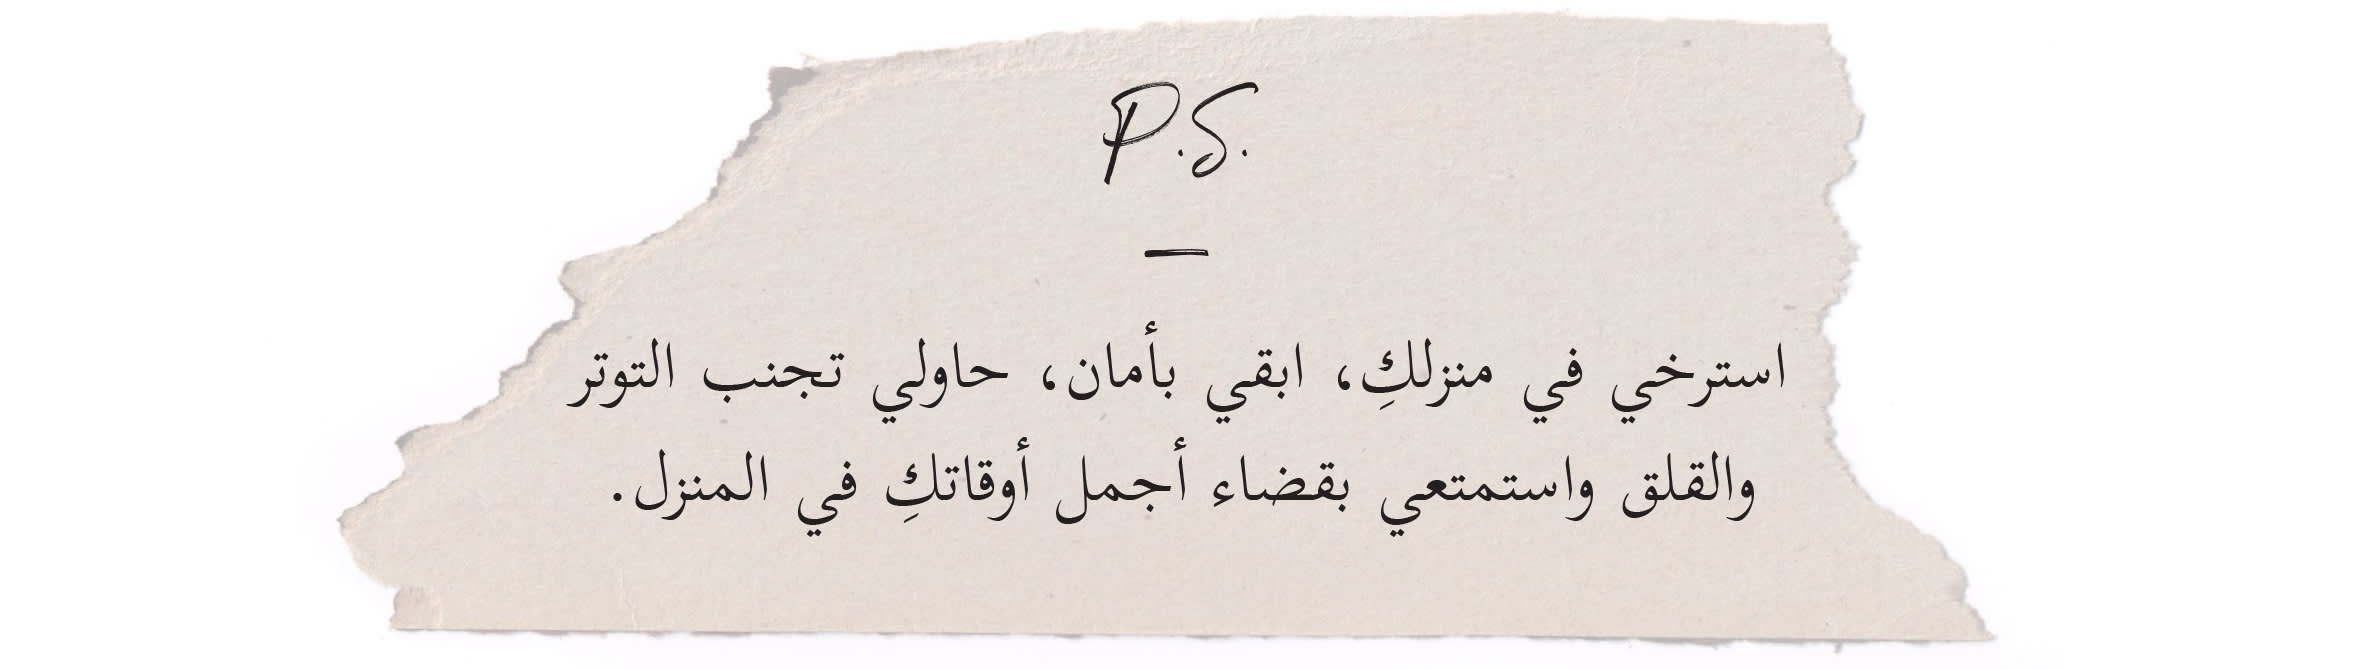 P.S.
—
استرخي في منزلكِ، ابقي بأمان، حاولي تجنب التوتر
والقلق واستمتعي بقضاء أجمل أوقاتكِ في المنزل.